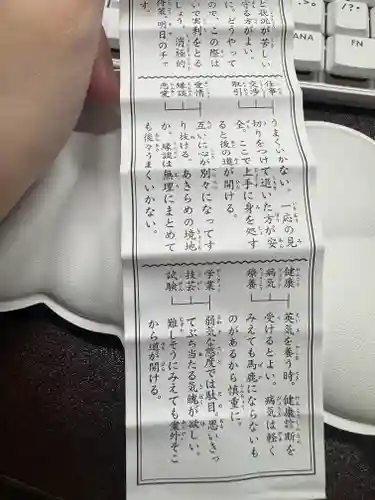 と状況が苦しい
守る方がよい。
に、どうやって
ので、この際は
いで実利をとる
しょう。消極的
将来、明日のチャ
す。
仕事
交渉
取引
うまくいかない。一応の見
切りをつけて退いた方が安
全。ここで上手に身を処す
ると後の道が開ける。
愛情
縁談
恋愛
互いに心が別々になってす
り抜ける。あきらめの境地
か。縁談は無理にまとめて
も後々うまくいかない。
健康
病気
療養
英気を養う時。健康診断を
受けるとよい。病気は軽く
みえても馬鹿にならないも
のがあるから慎重に。
学業
技芸
試験
弱気な態度では駄目。思いきっ
てぶち当たる気魄が欲しい。
難しそうにみえても案外そこ
から道が開ける。
ANA
?
/